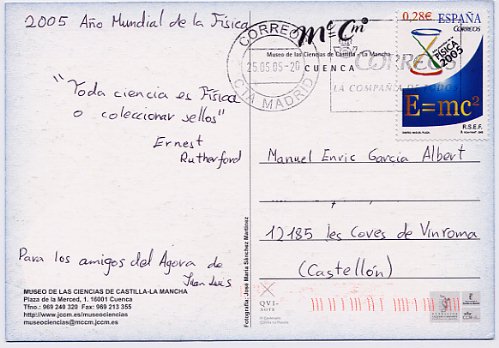 2005 Año Mundial de la Física
"Toda ciencia es Física
o coleccionar sellos"
Ernest
Rutherford
Para los amigos del Agora de
Juan Luis
MUSEO DE LAS CIENCIAS DE CASTILLA-LA MANCHA
Plaza de la Merced, 1, 16001 Cuenca
Tfno.: 969 240 320 Fax: 969 213 355
http://www.jccm.es/museociencias
museociencias@mccm.jccm.es
Fotografía: José María Sánchez Martínez
Museo de las Ciencias de Castilla - La Mancha
CUENCA
CORREOS
25.05.05-20
CTA MADRID
CORREOS
LA COMPAÑIA DE TODOS
0,28€ ESPAÑA
CORREOS
FÍSICA
2005
E=mc²
R.S.E.F.
Manuel Enric Garcia Albert
12185 les Coves de Vinroma
(Castellón)
QVI-